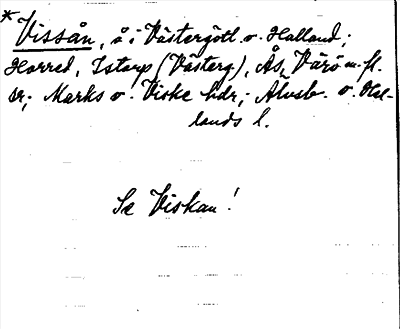 * Vissån, å i Västergötl o. Halland;
Horred, Istorp (Västerg), Ås, Värö m. fl.
sr; Marks o. Viske hdr; Älvsb. o. Hal-
lands l.
Se Viskan!